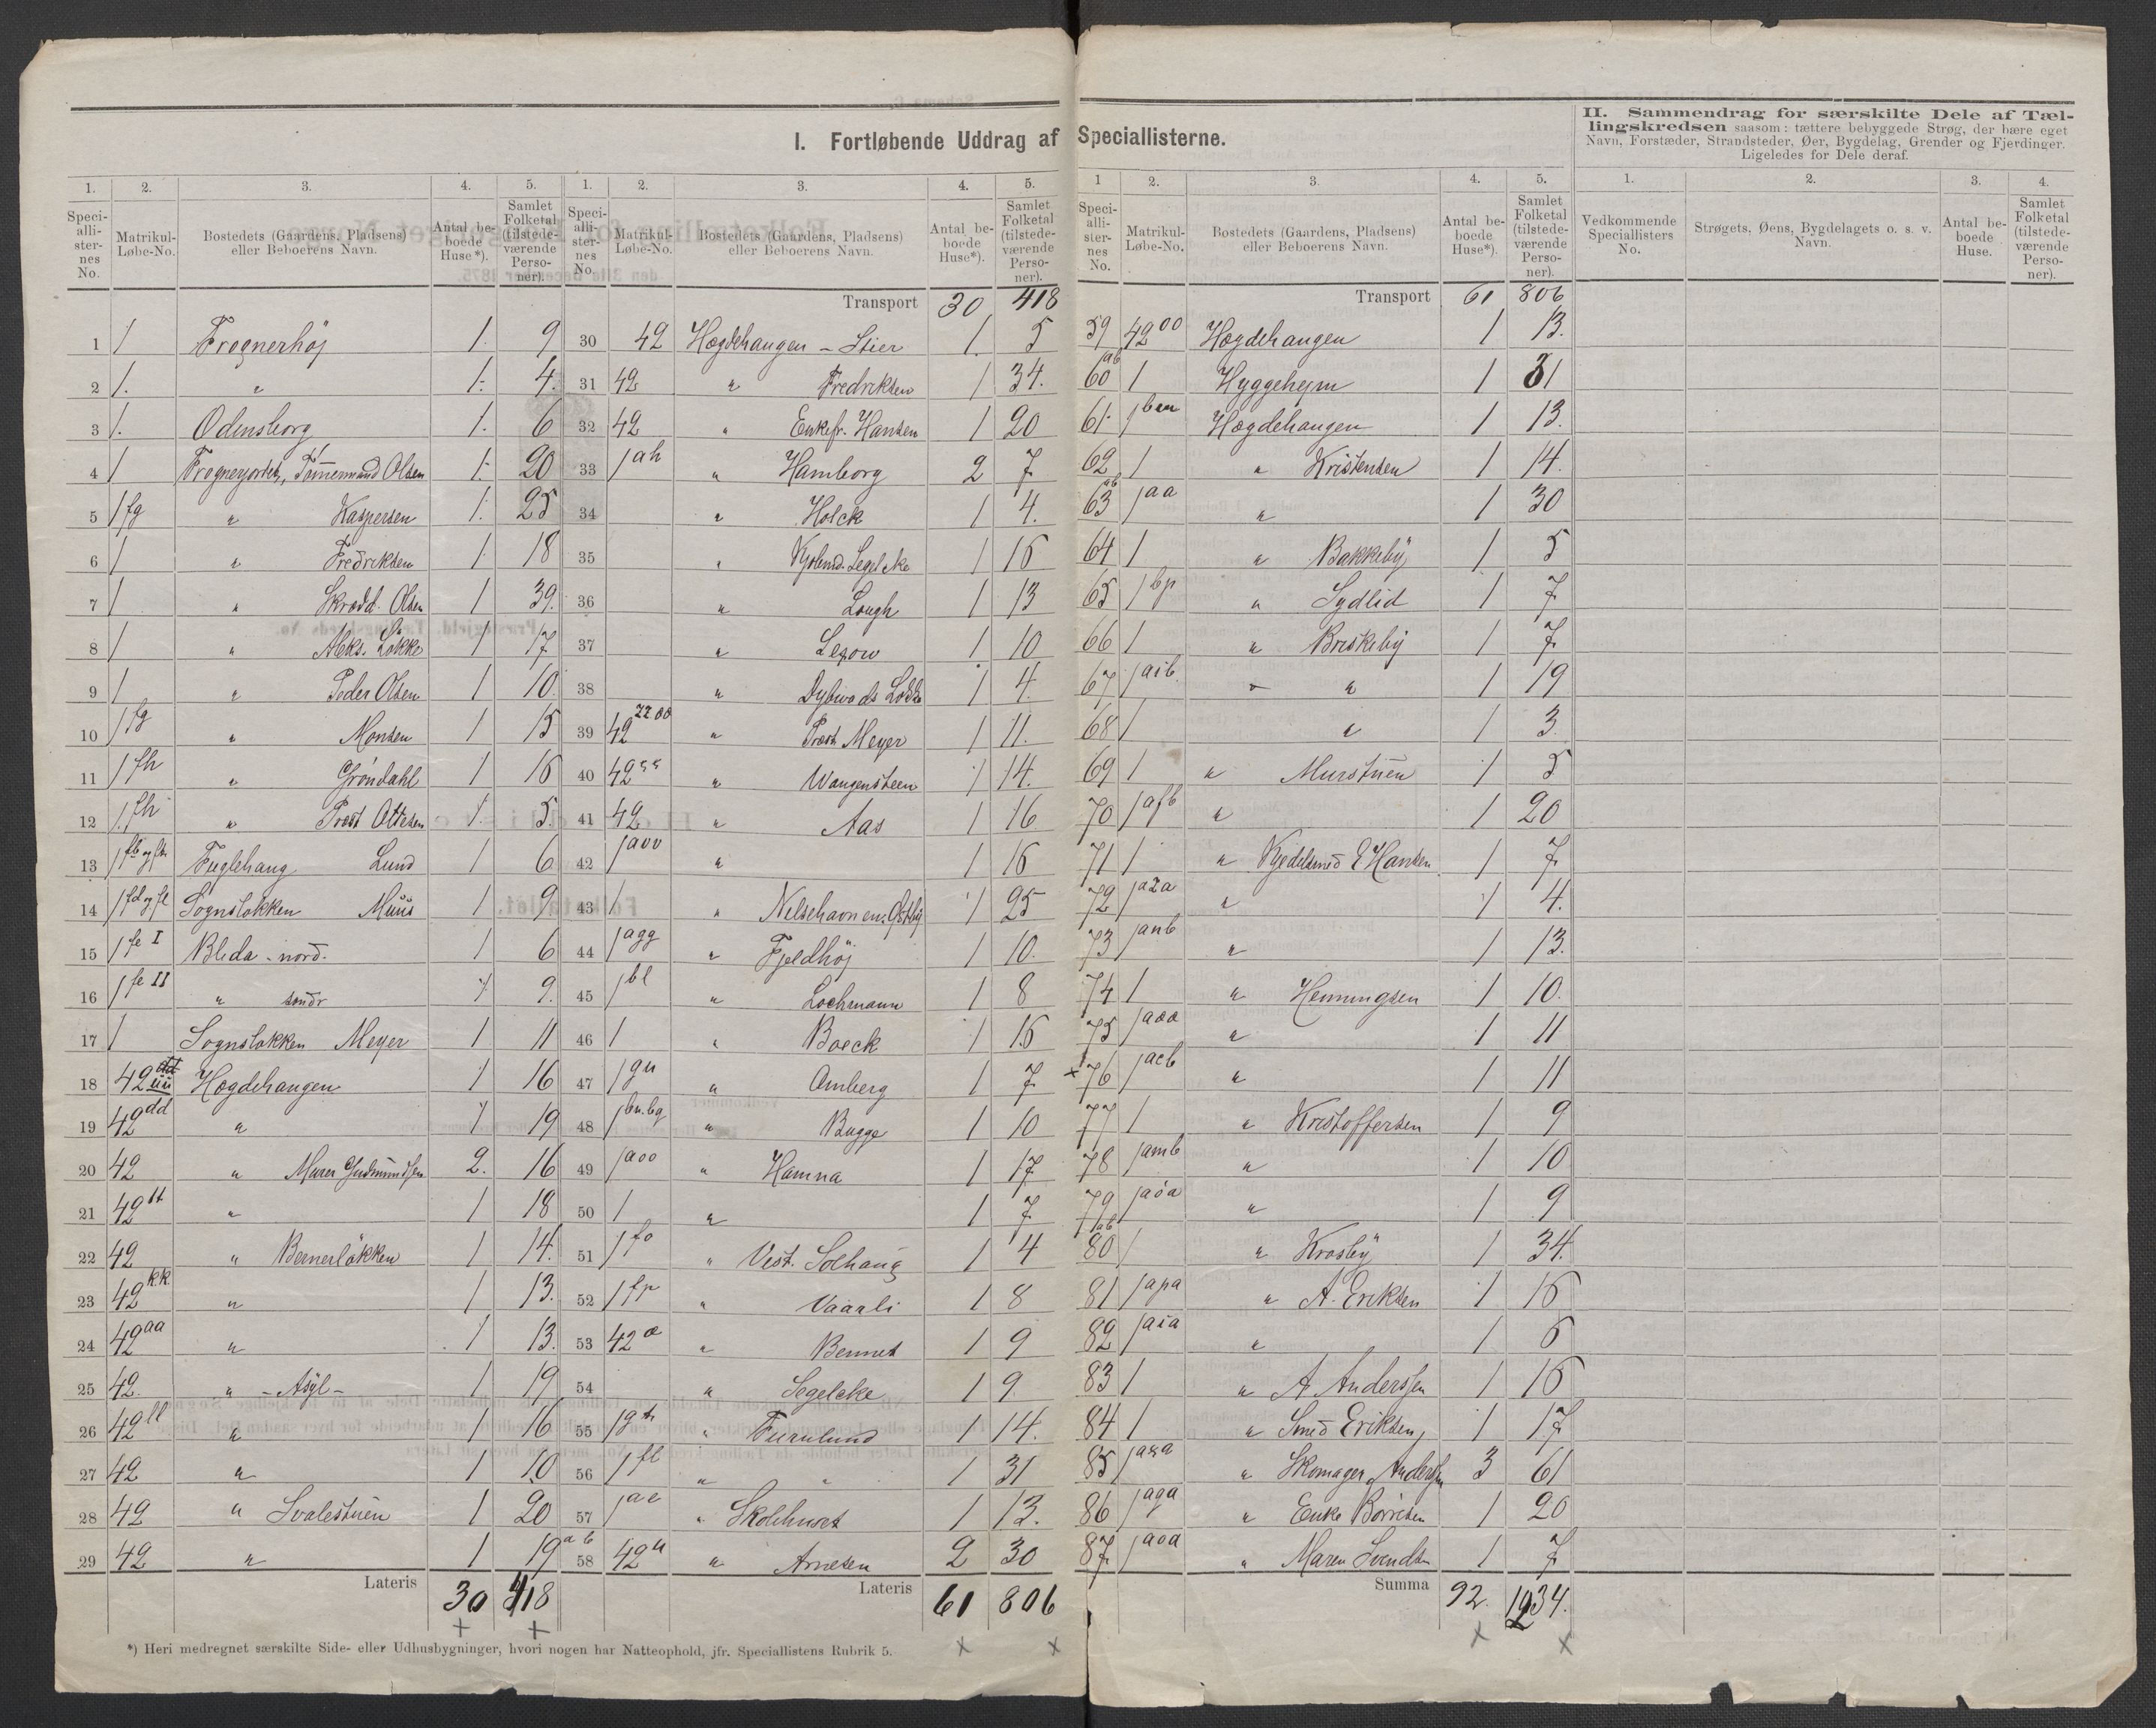 I. Fortløbende Uddrag af Speciallisterne.
II. Sammendrag for særskilte Dele af Tællingskredsen saasom: tættere bebyggede Strøg, der bære eget Navn, Forstæder, Strandsteder, Øer, Bygdelag, Grender og Fjerdinger. Ligeledes for Dele deraf.
1. 2. 3. 4. 5.
Speciallisternes No. Matrikul-Løbe-No. Bostedets (Gaardens, Pladsens) eller Beboerens Navn. Antal beboede Huse*). Samlet Folketal (tilstedeværende Personer).
1 1 Frognerhöj 1. 9
2 1. " 1. 4.
3 1. Odensborg 1. 6
4 1 Frognerjordet, Tömmermand Olsen 1. 20
5 1 fg " Kaspersen 1. 25
6 1 " Fredriksen 1. 18
7 1 " Skrædd. Olsen 1 39.
8 1 " Aleks. Lökke 1 17
9 1 " Peder Olsen 1 10.
10 1 fg " Monsen 1 15
11 1 fh " Gröndahl 1 16
12 1. fh " Prost Ottesen 1. 5.
13 1 fb og fk Fuglehaug Lund 1 6
14 1 fd og fl Sognsløkken Muus 1 9
15 1 fe I Blida - nord. 1 6
16 1 fe II " søndr 1 9.
17 1 Sognsløkken Meyer 1 11
18 42 üü Hægdehaugen 1 16
19 42 dd " 1 19
20 42 " Murer Gudmundsen 2. 16
21 42 tt " 1 18
22 42 " Bernerlökken 1 14.
23 42 kk " 1 13.
24 42 aa " 1 13.
25 42. " - Asyl - 1 19
26 42 ll " 1 16
27 42 " 1 10
28 42 " Svalestuen 1 20
29 42 " 1 19
Lateris 30 418
1. 2. 3. 4. 5.
Speciallisternes No. Matrikul-Løbe-No. Bostedets (Gaardens, Pladsens) eller Beboerens Navn. Antal beboede Huse*). Samlet Folketal (tilstedeværende Personer).
Transport 30 418
30 42 Hægdehaugen - Stier 1. 5
31 42 " Fredriksen 1 34.
32 42 " Enkefr. Hansen 1 20
33 1 ah " Hamborg 2 7
34 " Holck 1 4.
35 " Kjøbmd. Segelcke 1 16
36 " Lough 1 13
37 " Lesow 1 10
38 " Dybwads Løkke 1 4.
39 42 " Præst Meyer 1 11.
40 42 " Wangensteen 1 14.
41 42 " Aas 1 16
42 1 aov " 1 16
43 1 " Nelsehavnen. Østby 1 25
44 1 agg " Fjeldhöj 1 10.
45 1 bl " Lochmann 1 8
46 1 " Boeck 1 16
47 1 gu " Omberg 1 7
48 1 bn.bq " Bugge 1 10
49 1 aoo " Hamna 1 17
50 1 " 1 7
51 1 fo " Vest. Solhaug 1 4
52 1 fp " Vaarli 1 8
53 42 æ " Bennet 1 9
54 " Segelcke 1 9.
55 1 " Furulund 1 14.
56 1 fl " " 1 31
57 1 ae " Skolehuset 1 13.
58 ab 42 u " Arnesen 2 30
Lateris 61 806
1 2. 3. 4. 5.
Speciallisternes No. Matrikul-Løbe-No. Bostedets (Gaardens, Pladsens) eller Beboerens Navn. Antal beboede Huse*). Samlet Folketal (tilstedeværende Personer).
Transport 61 806
59 42 oo Hægdehaugen 1 13.
60 ab 1 Hyggehejm 1 31
61. 1 Hægdehaugen 1 13.
62 1 " Kristensen 1 14.
63 ab 1 aa " 1 30
64 1 " Bakkeby 1 5
65 1 bp " Sydlid 1 7
66 1 " Briskeby 1 7
67 1 aib. " " 1 19
68 1 " 1 3.
69 1 " Murstuen 1 5
70 1 afb " 1 20
71 1 " Kjedelsmed E Hansen 1 7
72 1 aza " 1 4.
73 1 anb " 1 13.
74 1 " Henningsen 1 10.
75 1 aoo " 1 11
76 1 acb " 1 11
77 1 " Kristoffersen 1 9
78 1 amb " 1 10
79 1 aöa " 1 9
80 ab 1 " Krosby 1 34.
81 1 apa " A. Eriksen 1 16
82 1 aia " 1 6
83 1 " A Anderssen 1 16
84 1 " Smed Eriksen 1 17
85 1 " Skomager Anderssen 3 61
86 1 aga " Enke Börresen 1 20
87 1 aoa " Maren Svendsen 1 7
Summa 92. 1234.
1. 2. 3. 4.
Vedkommende Speciallisters No. Strøgets, Øens, Bygdelagets o. s. v. Navn. Antal beboede Huse. Samlet Folketal (tilstedeværende Personer).
*) Heri medregnet særskilte Side- eller Udhusbygninger, hvori nogen har Natteophold, jfr. Speciallistens Rubrik 5.